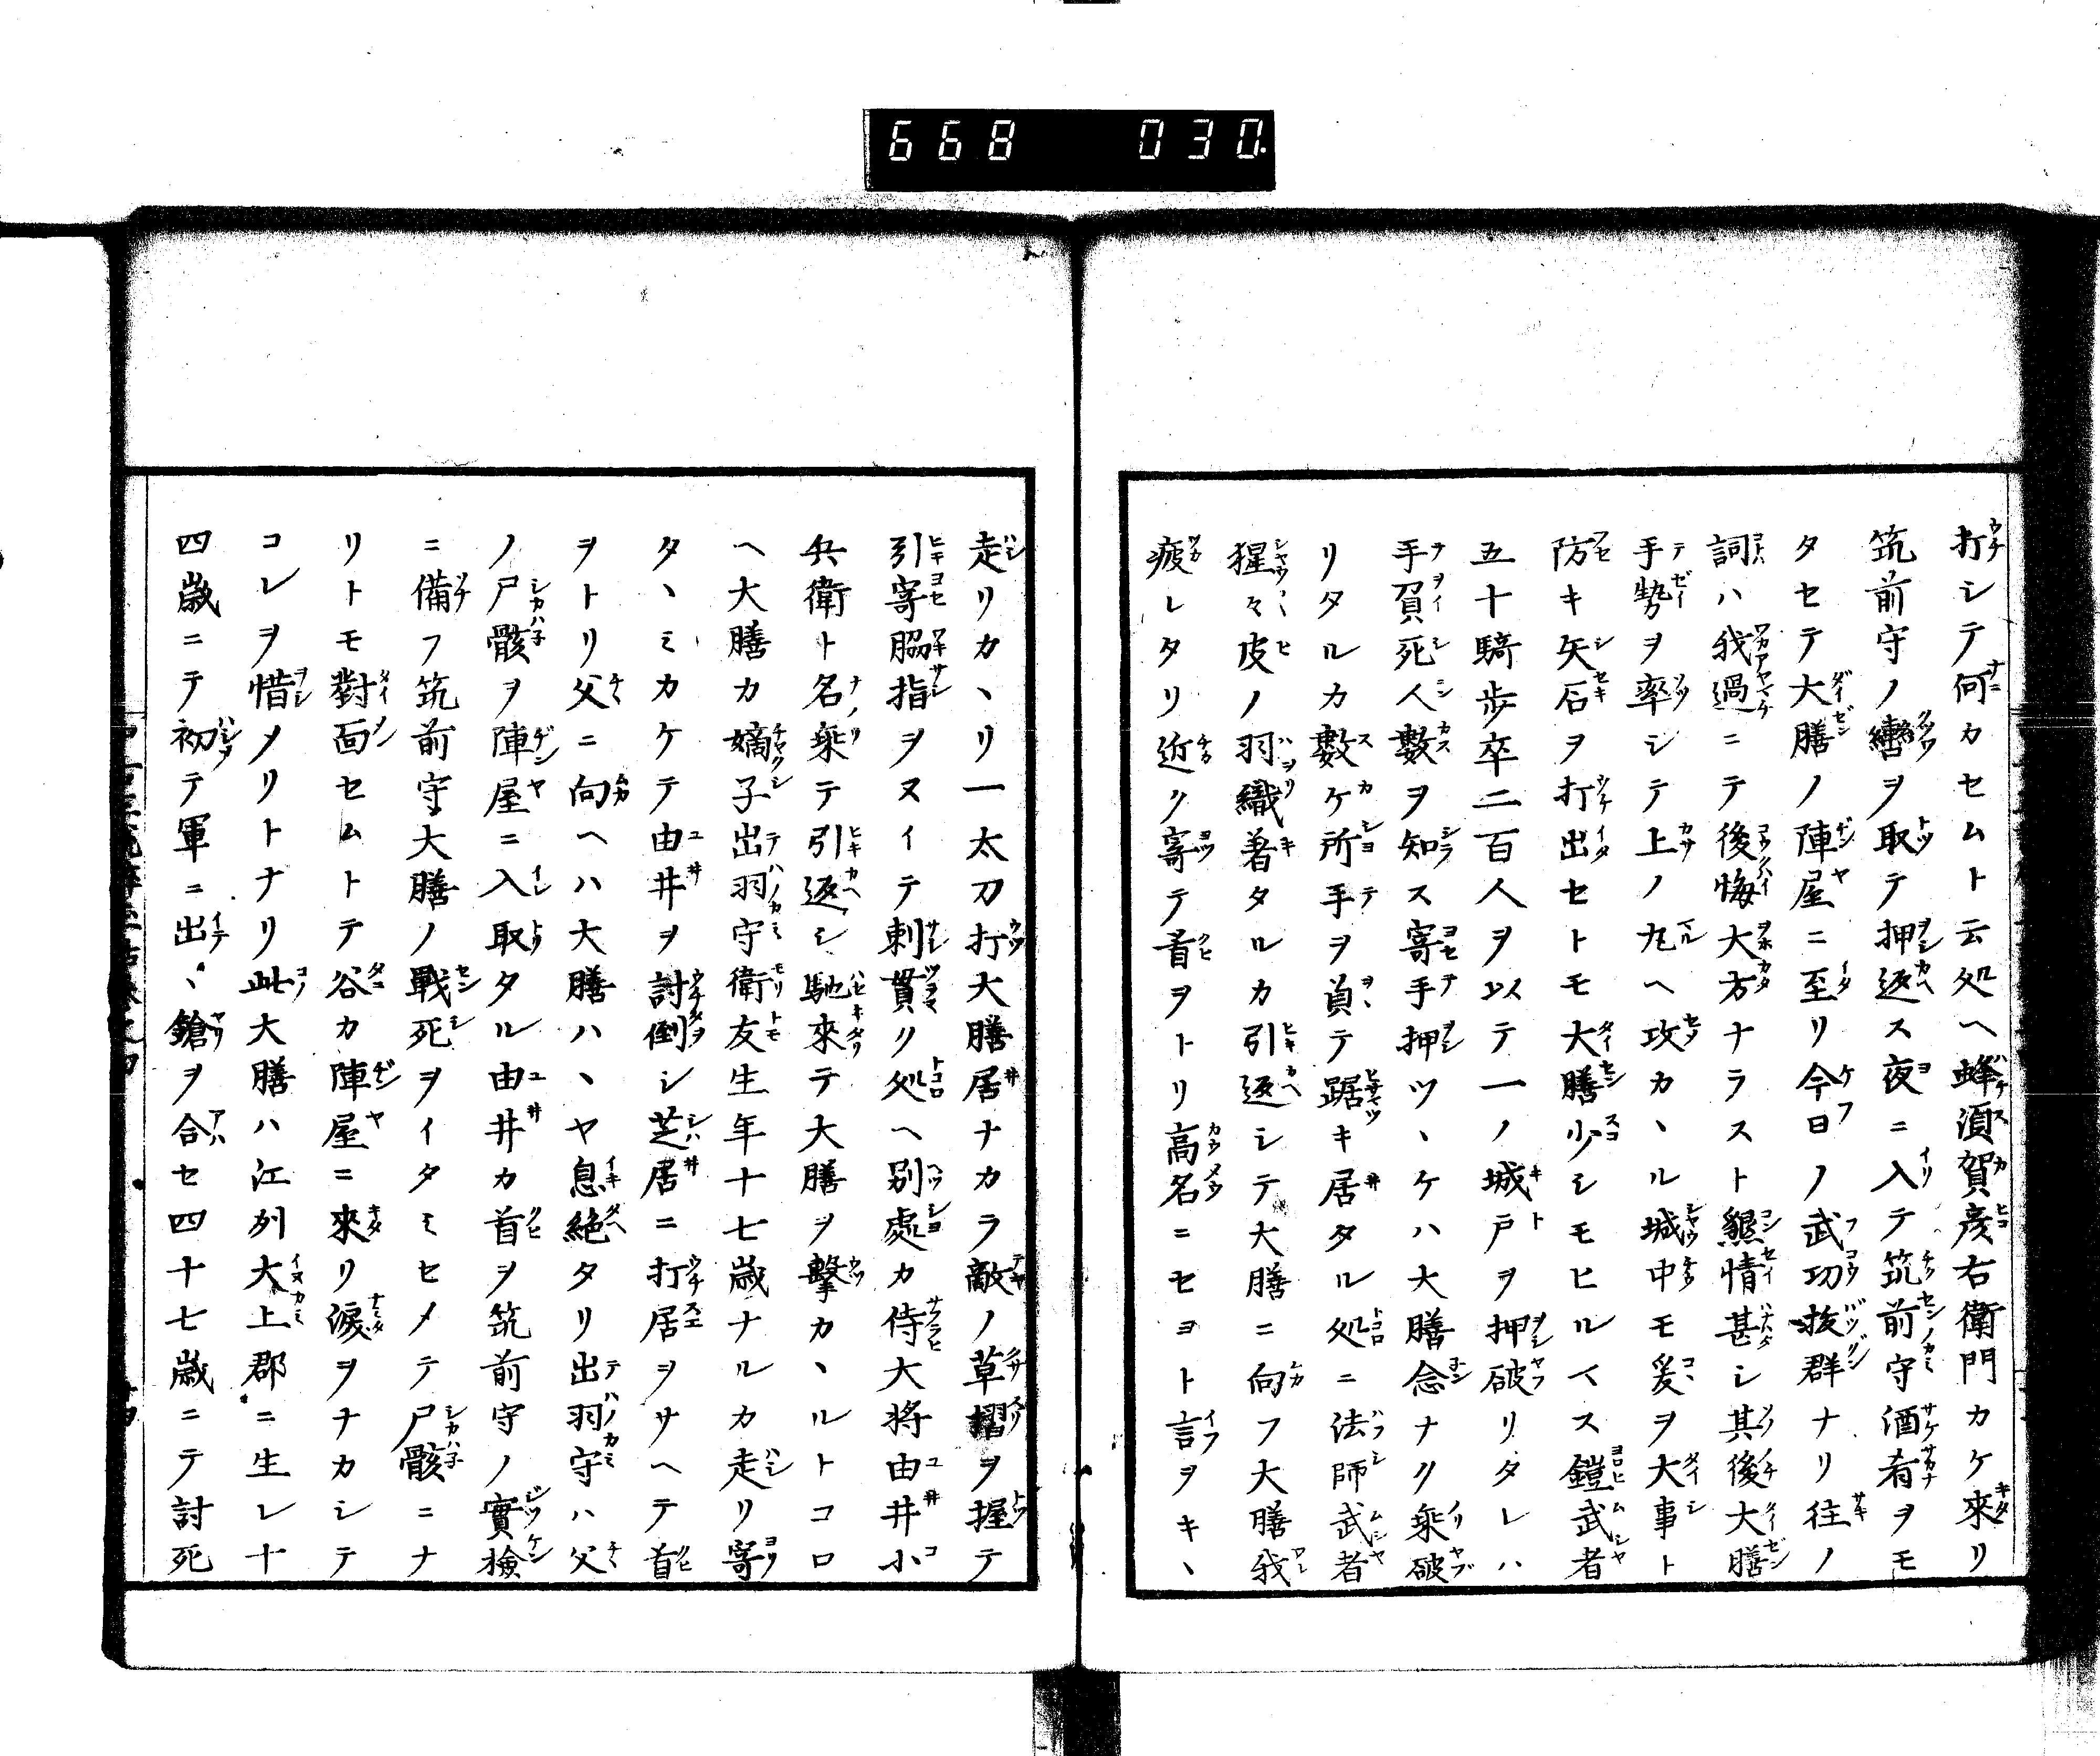 668 030
打シテ何カセムト云処ヘ蜂須賀彦右衛門カケ來リ
筑前守ノ轡ヲ取テ押返ス夜ニ入テ筑前守酒肴ヲモ
タセテ大膳ノ陣屋ニ至リ今日ノ武功抜群ナリ往ノ
詞ハ我過ニテ後悔大方ナラスト懇情甚シ其後大膳
手勢ヲ率シテ上ノ丸ヘ攻カヽル城中モ爰ヲ大事ト
防キ矢石ヲ打出セトモ大膳少シモヒルマス鎧武者
五十騎歩卒二百人ヲ以テ一ノ城戸ヲ押破リタレハ
手負死人數ヲ知ス寄手押ツヽケハ大膳念ナク乗破
リタルカ數ケ所手ヲ負テ踞キ居タル処ニ法師武者
猩々皮ノ羽織著タルカ引返シテ大膳ニ向フ大膳我
疲レタリ近ク寄テ首ヲトリ高名ニセヨト言ヲキヽ
走リカヽリ一太刀打大膳居ナカラ敵ノ草摺ヲ握テ
引寄脇指ヲヌイテ刺貫ク処ヘ別處カ侍大将由井小
兵衛ト名乗テ引返シ馳來テ大膳ヲ撃カヽルトコロ
ヘ大膳カ嫡子出羽守衛友生年十七歳ナルカ走リ寄
タヽミカケテ由井ヲ討倒シ芝居ニ打居ヲサヘテ首
ヲトリ父ニ向ヘハ大膳ハヽヤ息絶タリ出羽守ハ父
ノ尸骸ヲ陣屋ニ入取タル由井カ首ヲ筑前守ノ實撿
ニ備フ筑前守大膳ノ戰死ヲイタミセメテ尸骸ニナ
リトモ對面セムトテ谷カ陣屋ニ來リ涙ヲナカシテ
コレヲ惜メリトナリ此大膳ハ江列大上郡ニ生レ十
四歳ニテ初テ軍ニ出ヽ鎗ヲ合セ四十七歳ニテ討死